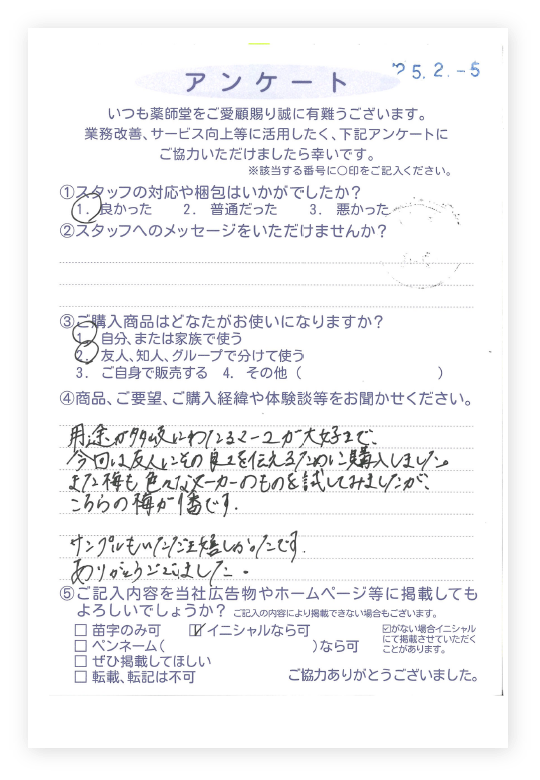 '25.2.-5
アンケート
いつも薬師堂をご愛顧賜り誠に有難うございます。
業務改善、サービス向上等に活用したく、下記アンケートに
ご協力いただけましたら幸いです。
※該当する番号に○印をご記入ください。
①スタッフの対応や梱包はいかがでしたか？
1. 良かった 2. 普通だった 3. 悪かった
②スタッフへのメッセージをいただけませんか？
③ご購入商品はどなたがお使いになりますか？
1. 自分、または家族で使う
2. 友人、知人、グループで分けて使う
3. ご自身で販売する 4. その他（ ）
④商品、ご要望、ご購入経緯や体験談等をお聞かせください。
用途が多岐にわたるマーユが大好きで、
今回は友人にその良さを伝えるために購入しました。
また梅も色々なメーカーのものを試してみましたが、
こちらの梅が1番です.
サンプルもいただき嬉しかったです.
ありがとうございました。
⑤ご記入内容を当社広告物やホームページ等に掲載しても
よろしいでしょうか？ ご記入の内容により掲載できない場合もございます。
□ 苗字のみ可 ☑イニシャルなら可
□ ペンネーム（ ）なら可
□ ぜひ掲載してほしい
□ 転載、転記は不可
☑がない場合イニシャル
にて掲載させていただく
ことがあります。
ご協力ありがとうございました。